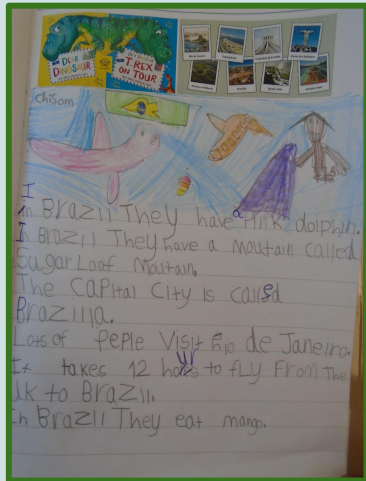 DEAR
DINOSAUR
T.REX
ON TOUR
Chisom
In Brazil They have a Pink dolphin.
In Brazil They have a moutain called
Sugar Loaf Moutain.
The CaPital City is called
Brazilia.
Lots of PePle Visit Rio de Janeiro.
It takes 12 hours to fly From The
Uk to Brazil.
In Brazil They eat mango.